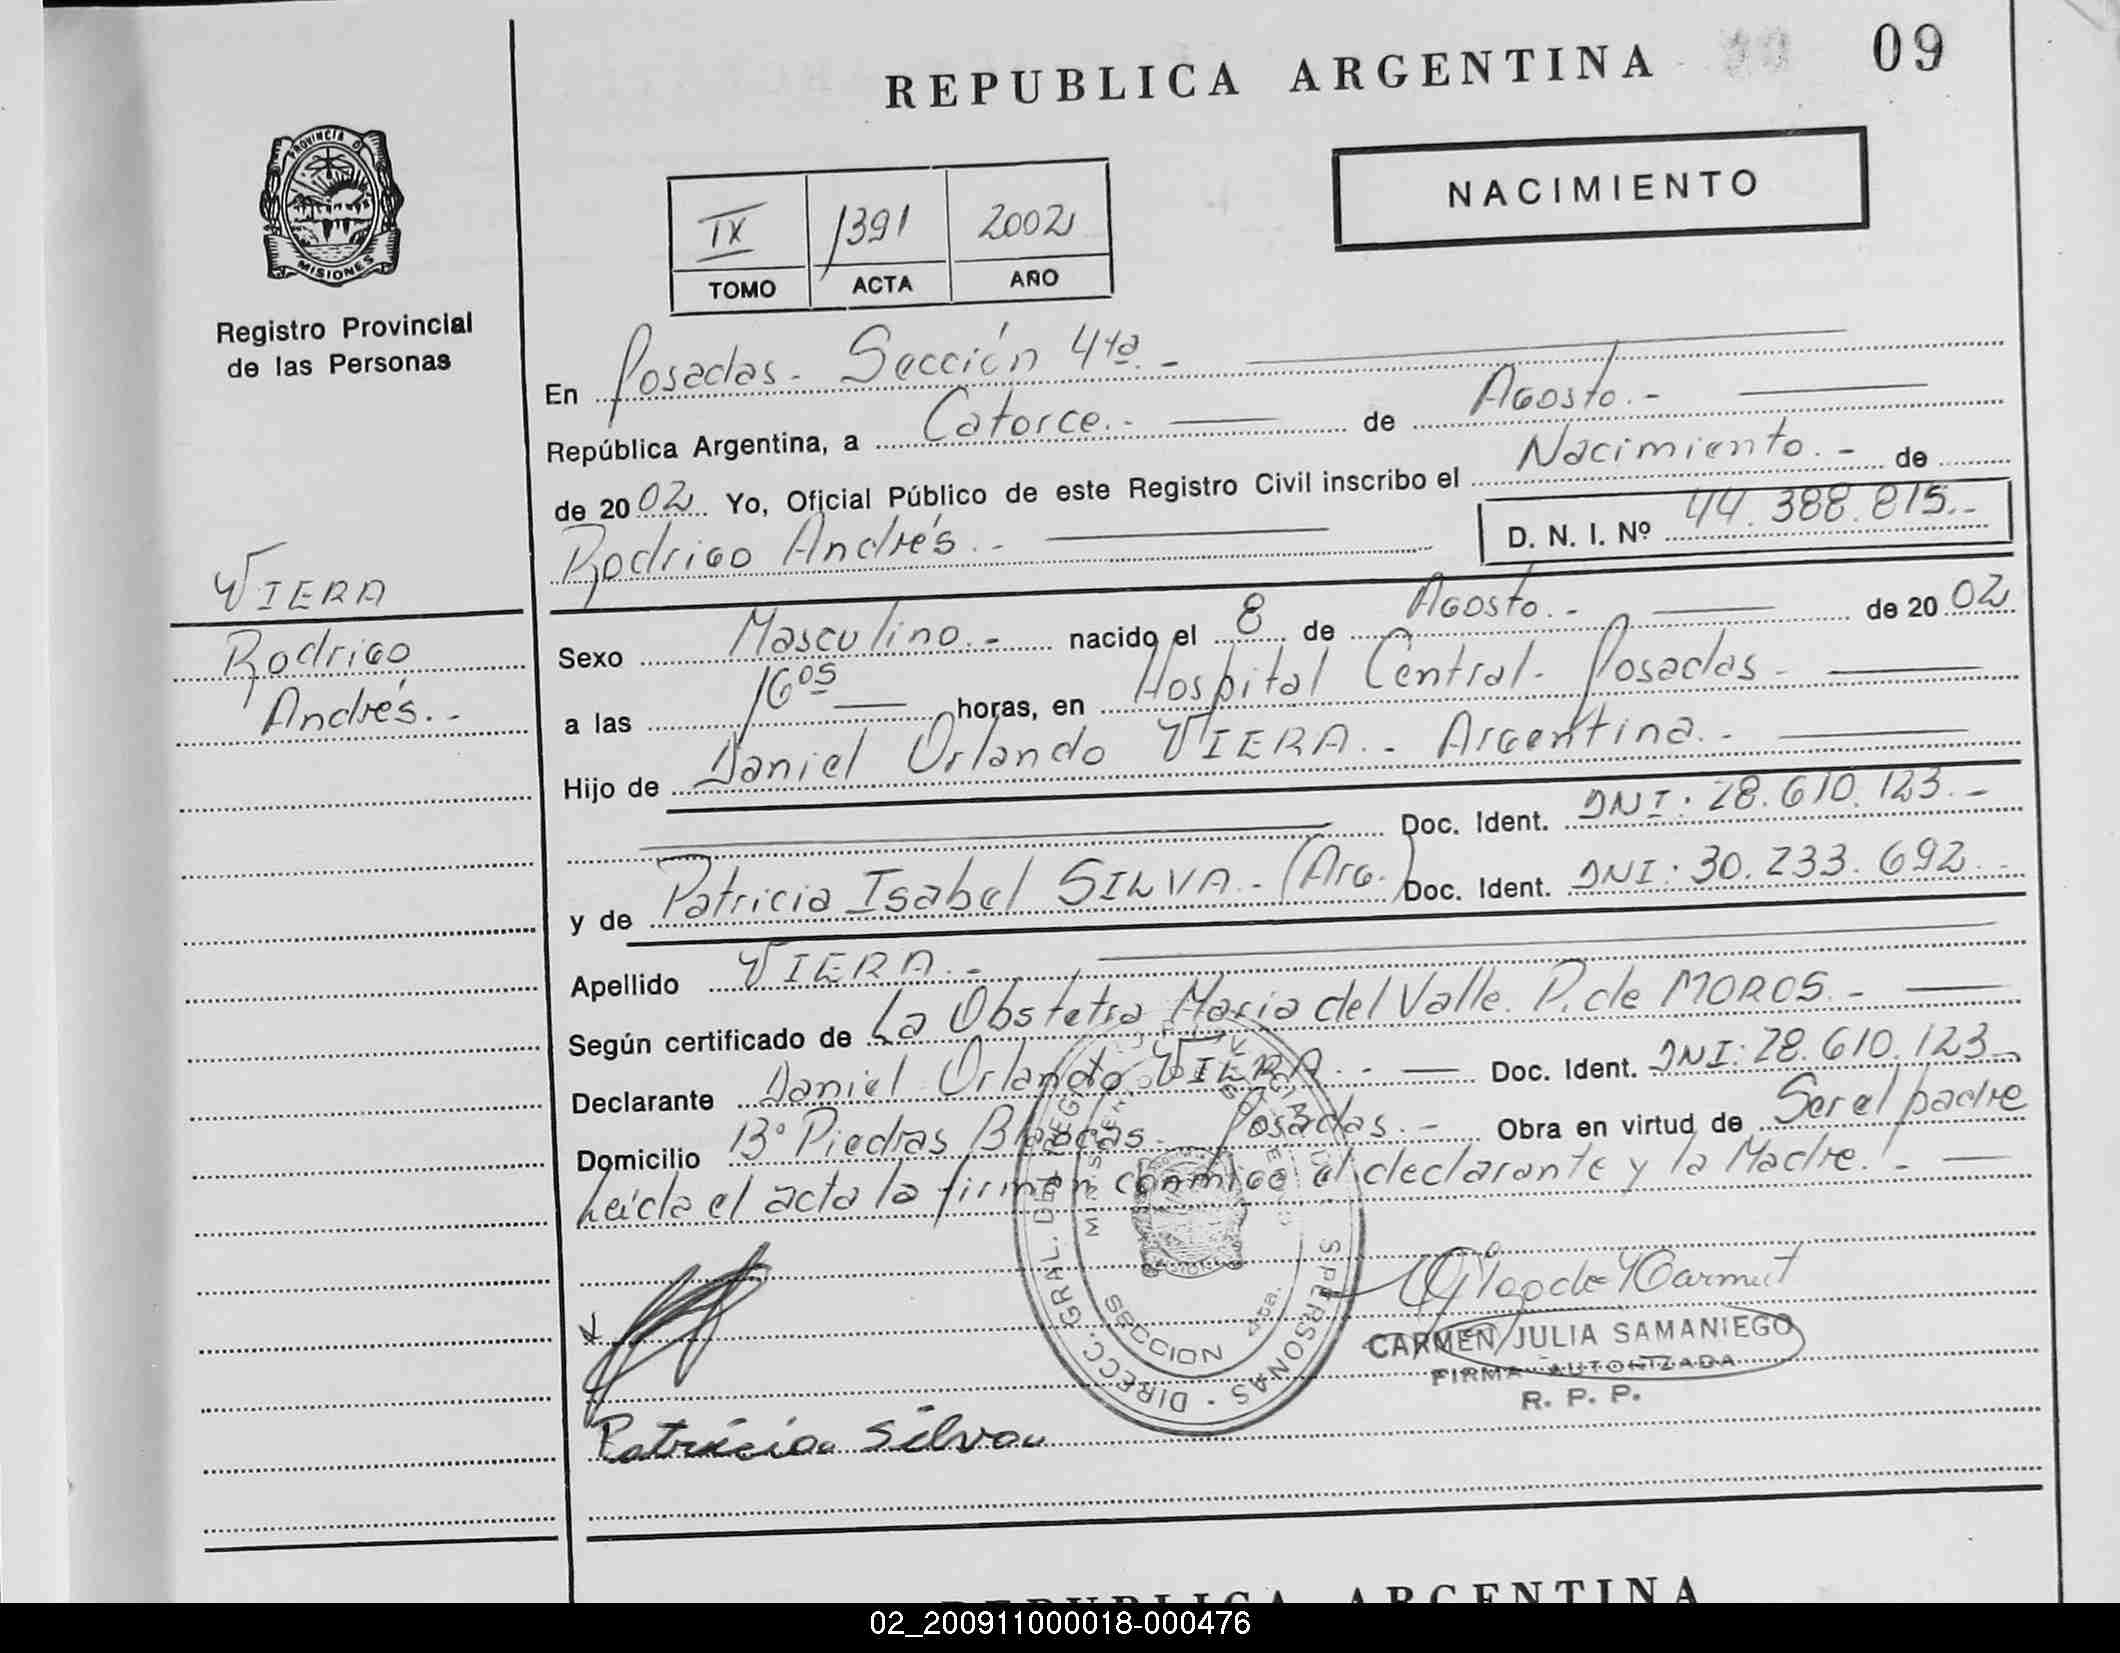 REPUBLICA ARGENTINA
09
PROVINCIA D
MISIONES
Registro Provincial
de las Personas
NACIMIENTO
IX 1391 2002
TOMO ACTA AÑO
En Posadas - Sección 4ta. -
República Argentina, a Catorce.- de Agosto.-
de 2002 Yo, Oficial Público de este Registro Civil inscribo el Nacimiento.- de
Rodrigo Andrés.-
D. N. I. Nº 44.388.815.-
VIERA
Rodrigo
Andrés.-
Sexo Masculino.- nacido el 8 de Agosto.- de 2002
a las 16 05 horas, en Hospital Central - Posadas -
Hijo de Daniel Orlando VIERA.- Argentina.-
Doc. Ident. DNI: 28.610.123.-
y de Patricia Isabel SILVA.- (Arg.) Doc. Ident. DNI: 30.233.692.-
Apellido VIERA.-
Según certificado de La Obstetra Maria del Valle. P. de MOROS.-
Declarante Daniel Orlando VIERA.- Doc. Ident. DNI: 28.610.123
Domicilio Bº Piedras Blancas - Posadas.- Obra en virtud de Ser el padre
Leída el acta la firman conmigo el declarante y la Madre.-
DIRECC. GRAL. DEL REG. PERSONAS
SECCION 4ta.
CARMEN JULIA SAMANIEGO
FIRMA AUTORIZADA
R. P. P.
Patricia Silva
REPUBLICA ARGENTINA
02_200911000018-000476